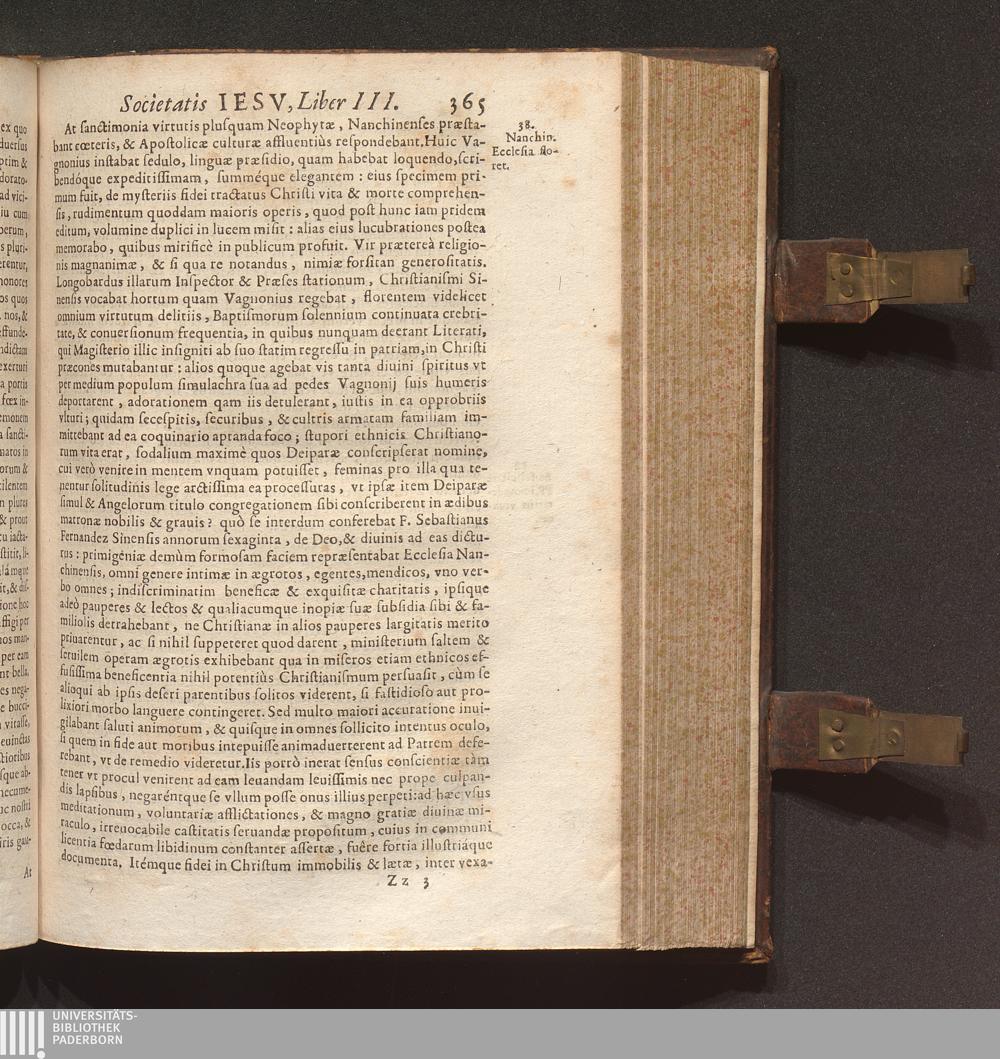 Societatis IESV, Liber III. 365
At sanctimonia virtutis plusquam Neophytæ, Nanchinenses præsta-
bant cœteris, & Apostolicæ culturæ affluentiùs respondebant. Huic Va-
gnonius instabat sedulo, linguæ præsidio, quam habebat loquendo, scri-
bendóque expeditissimam, summéque elegantem: eius specimem pri-
mum fuit, de mysteriis fidei tractatus Christi vita & morte comprehen-
sis, rudimentum quoddam maioris operis, quod post hunc iam pridem
editum, volumine duplici in lucem misit: alias eius lucubrationes postea
memorabo, quibus mirificè in publicum profuit. Vir prætereà religio-
nis magnanimæ, & si qua re notandus, nimiæ forsitan generositatis.
Longobardus illarum Inspector & Præses stationum, Christianismi Si-
nensis vocabat hortum quam Vagnonius regebat, florentem videlicet
omnium virtutum delitiis, Baptismorum solennium continuata crebri-
tate, & conuersionum frequentia, in quibus nunquam deerant Literati,
qui Magisterio illic insigniti ab suo statim regressu in patriam, in Christi
præcones mutabantur: alios quoque agebat vis tanta diuini spiritus vt
per medium populum simulachra sua ad pedes Vagnonij suis humeris
deportarent, adorationem qam iis detulerant, iustis in ea opprobriis
vlturi; quidam secespitis, securibus, & cultris armatam familiam im-
mittebant ad ea coquinario aptanda foco; stupori ethnicis Christiano-
rum vita erat, sodalium maximè quos Deiparæ conscripserat nomine,
cui verò venire in mentem vnquam potuisset, feminas pro illa qua te-
nentur solitudinis lege arctissima ea processuras, vt ipsæ item Deiparæ
simul & Angelorum titulo congregationem sibi conscriberent in ædibus
matronæ nobilis & grauis? quò se interdum conferebat F. Sebastianus
Fernandez Sinensis annorum sexaginta, de Deo, & diuinis ad eas dictu-
rus: primigeniæ demùm formosam faciem repræsentabat Ecclesia Nan-
chinensis, omni genere intimæ in ægrotos, egentes, mendicos, vno ver-
bo omnes; indiscriminatim beneficæ & exquisitæ charitatis, ipsique
adeò pauperes & lectos & qualiacumque inopiæ suæ subsidia sibi & fa-
miliolis detrahebant, ne Christianæ in alios pauperes largitatis merito
priuarentur, ac si nihil suppeteret quod darent, ministerium saltem &
seruilem operam ægrotis exhibebant qua in miseros etiam ethnicos ef-
fusissima beneficentia nihil potentiùs Christianismum persuasit, cùm se
alioqui ab ipsis deseri parentibus solitos viderent, si fastidioso aut pro-
lixiori morbo languere contingeret. Sed multo maiori accuratione inui-
gilabant saluti animorum, & quisque in omnes sollicito intentus oculo,
si quem in fide aut moribus intepuisse animaduerterent ad Patrem defe-
rebant, vt de remedio videretur. Iis porrò inerat sensus conscientiæ tàm
tener vt procul venirent ad eam leuandam leuissimis nec prope culpan-
dis lapsibus, negaréntque se vllum posse onus illius perpeti: ad hæc vsus
meditationum, voluntariæ afflictationes, & magno gratiæ diuinæ mi-
raculo, irreuocabile castitatis seruandæ propositum, cuius in communi
licentia fœdarum libidinum constanter assertæ, fuêre fortia illustriáque
documenta. Itémque fidei in Christum immobilis & lætæ, inter vexa-
Zz 3
38.
Nanchin.
Ecclesia flo-
ret.
UNIVERSITÄTS-
BIBLIOTHEK
PADERBORN